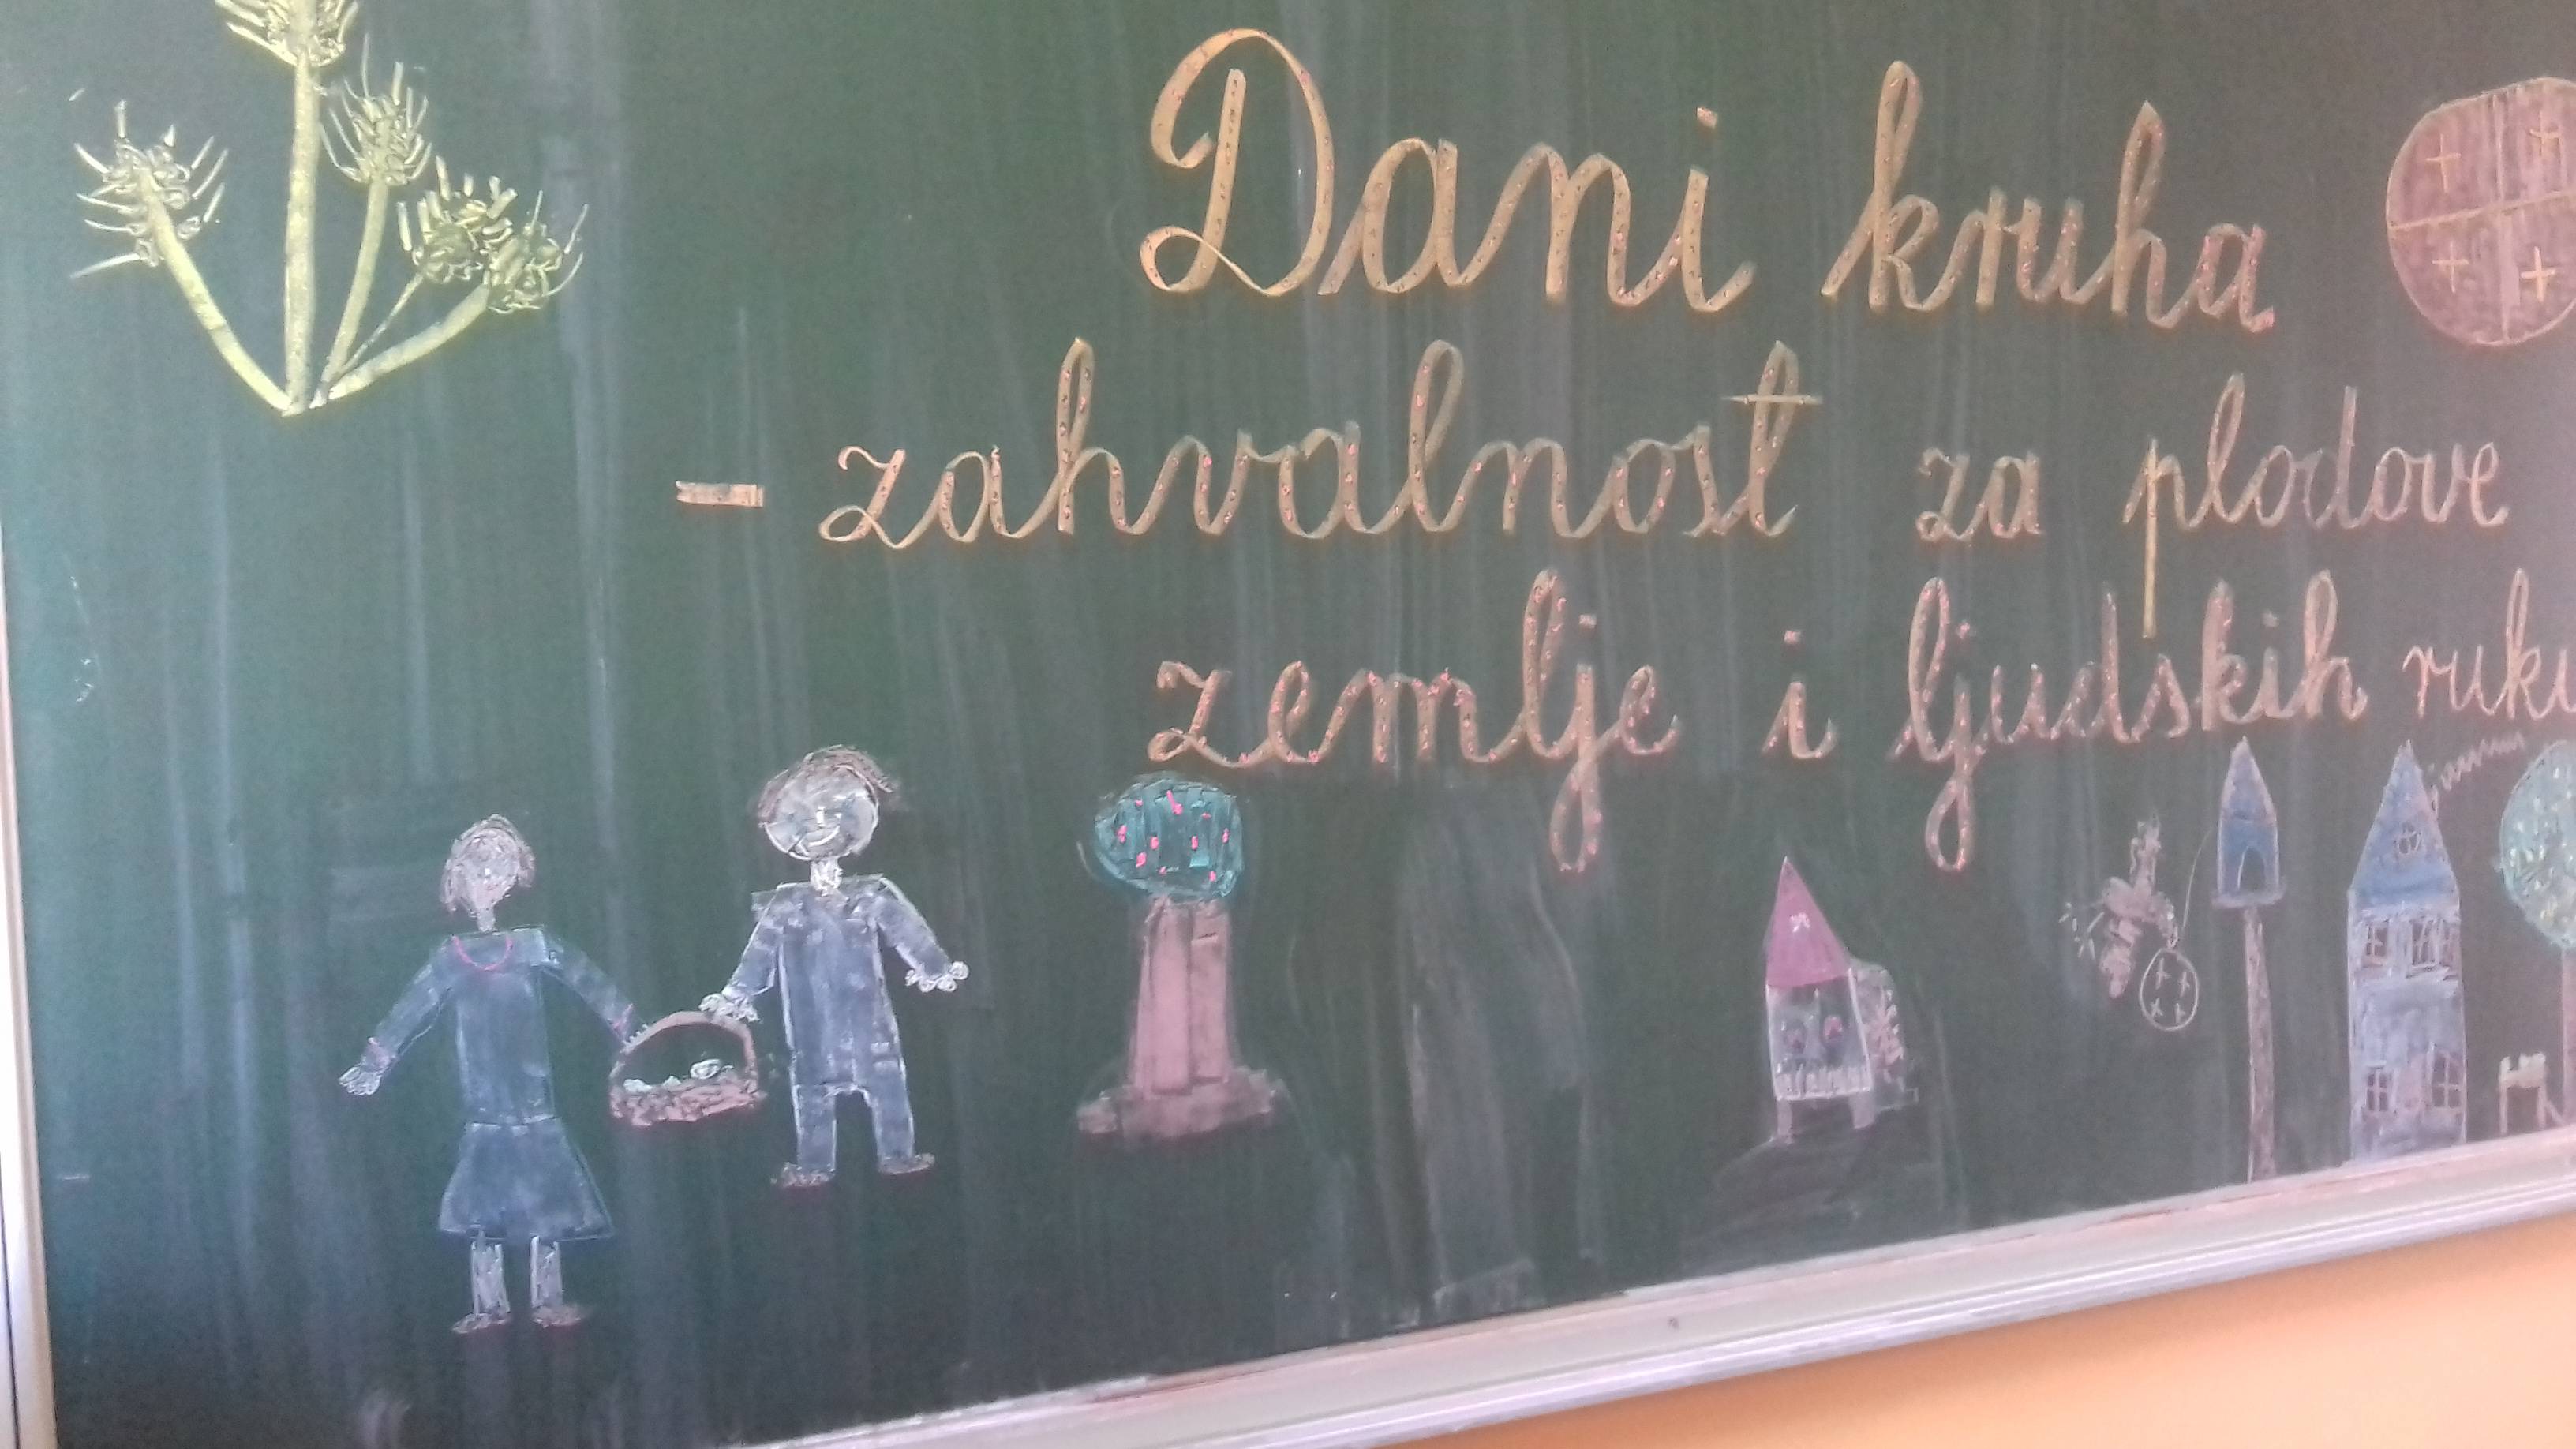 Dani kruha
- zahvalnost za plodove
zemlje i ljudskih ruku